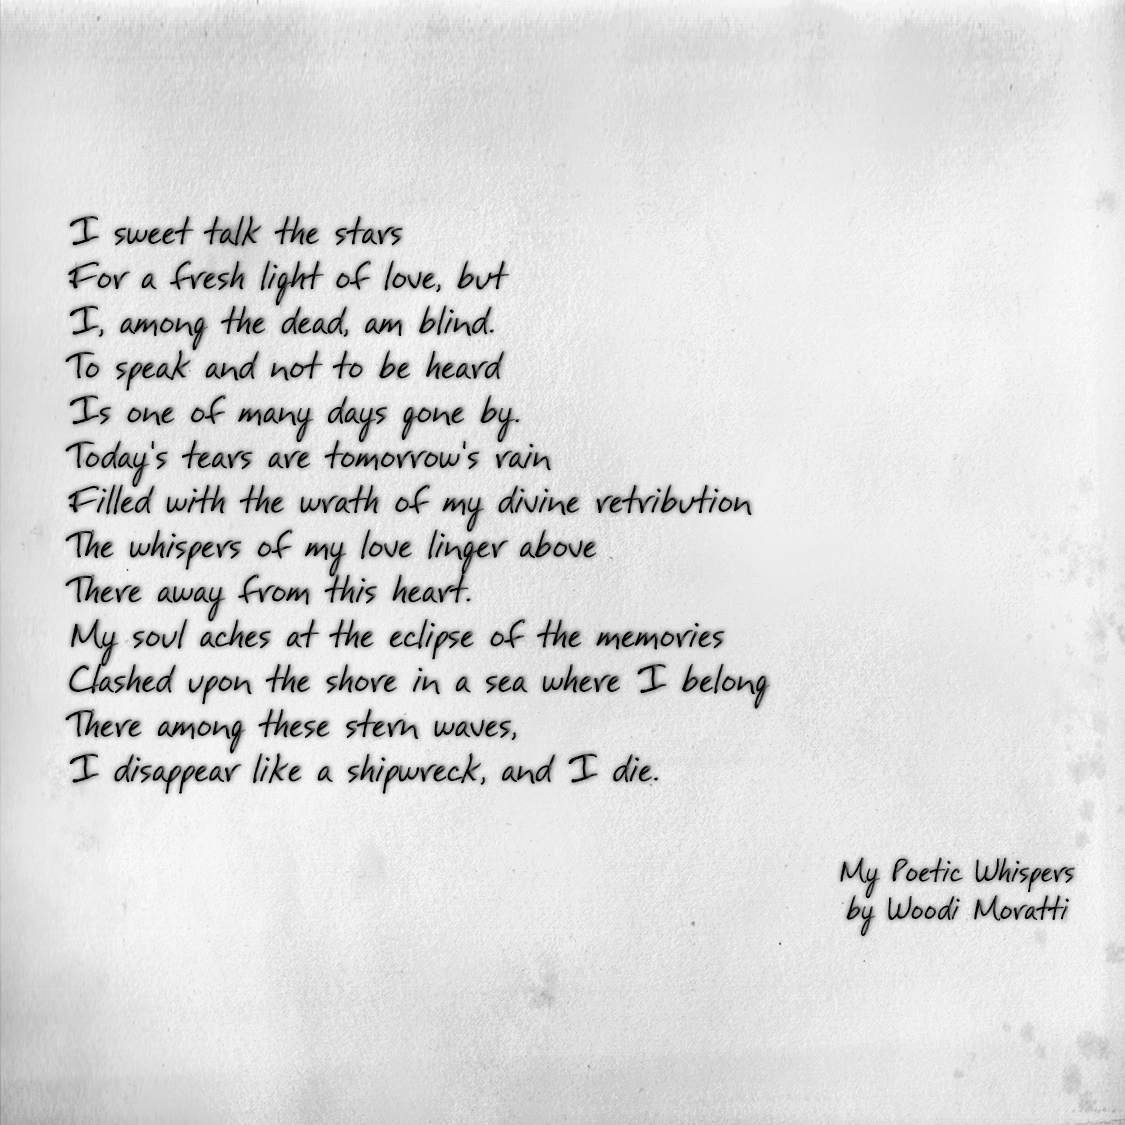 I sweet talk the stars
For a fresh light of love, but
I, among the dead, am blind.
To speak and not to be heard
Is one of many days gone by.
Today's tears are tomorrow's rain
Filled with the wrath of my divine retribution
The whispers of my love linger above
There away from this heart.
My soul aches at the eclipse of the memories
Clashed upon the shore in a sea where I belong
There among these stern waves,
I disappear like a shipwreck, and I die.
My Poetic Whispers
by Woodi Moratti